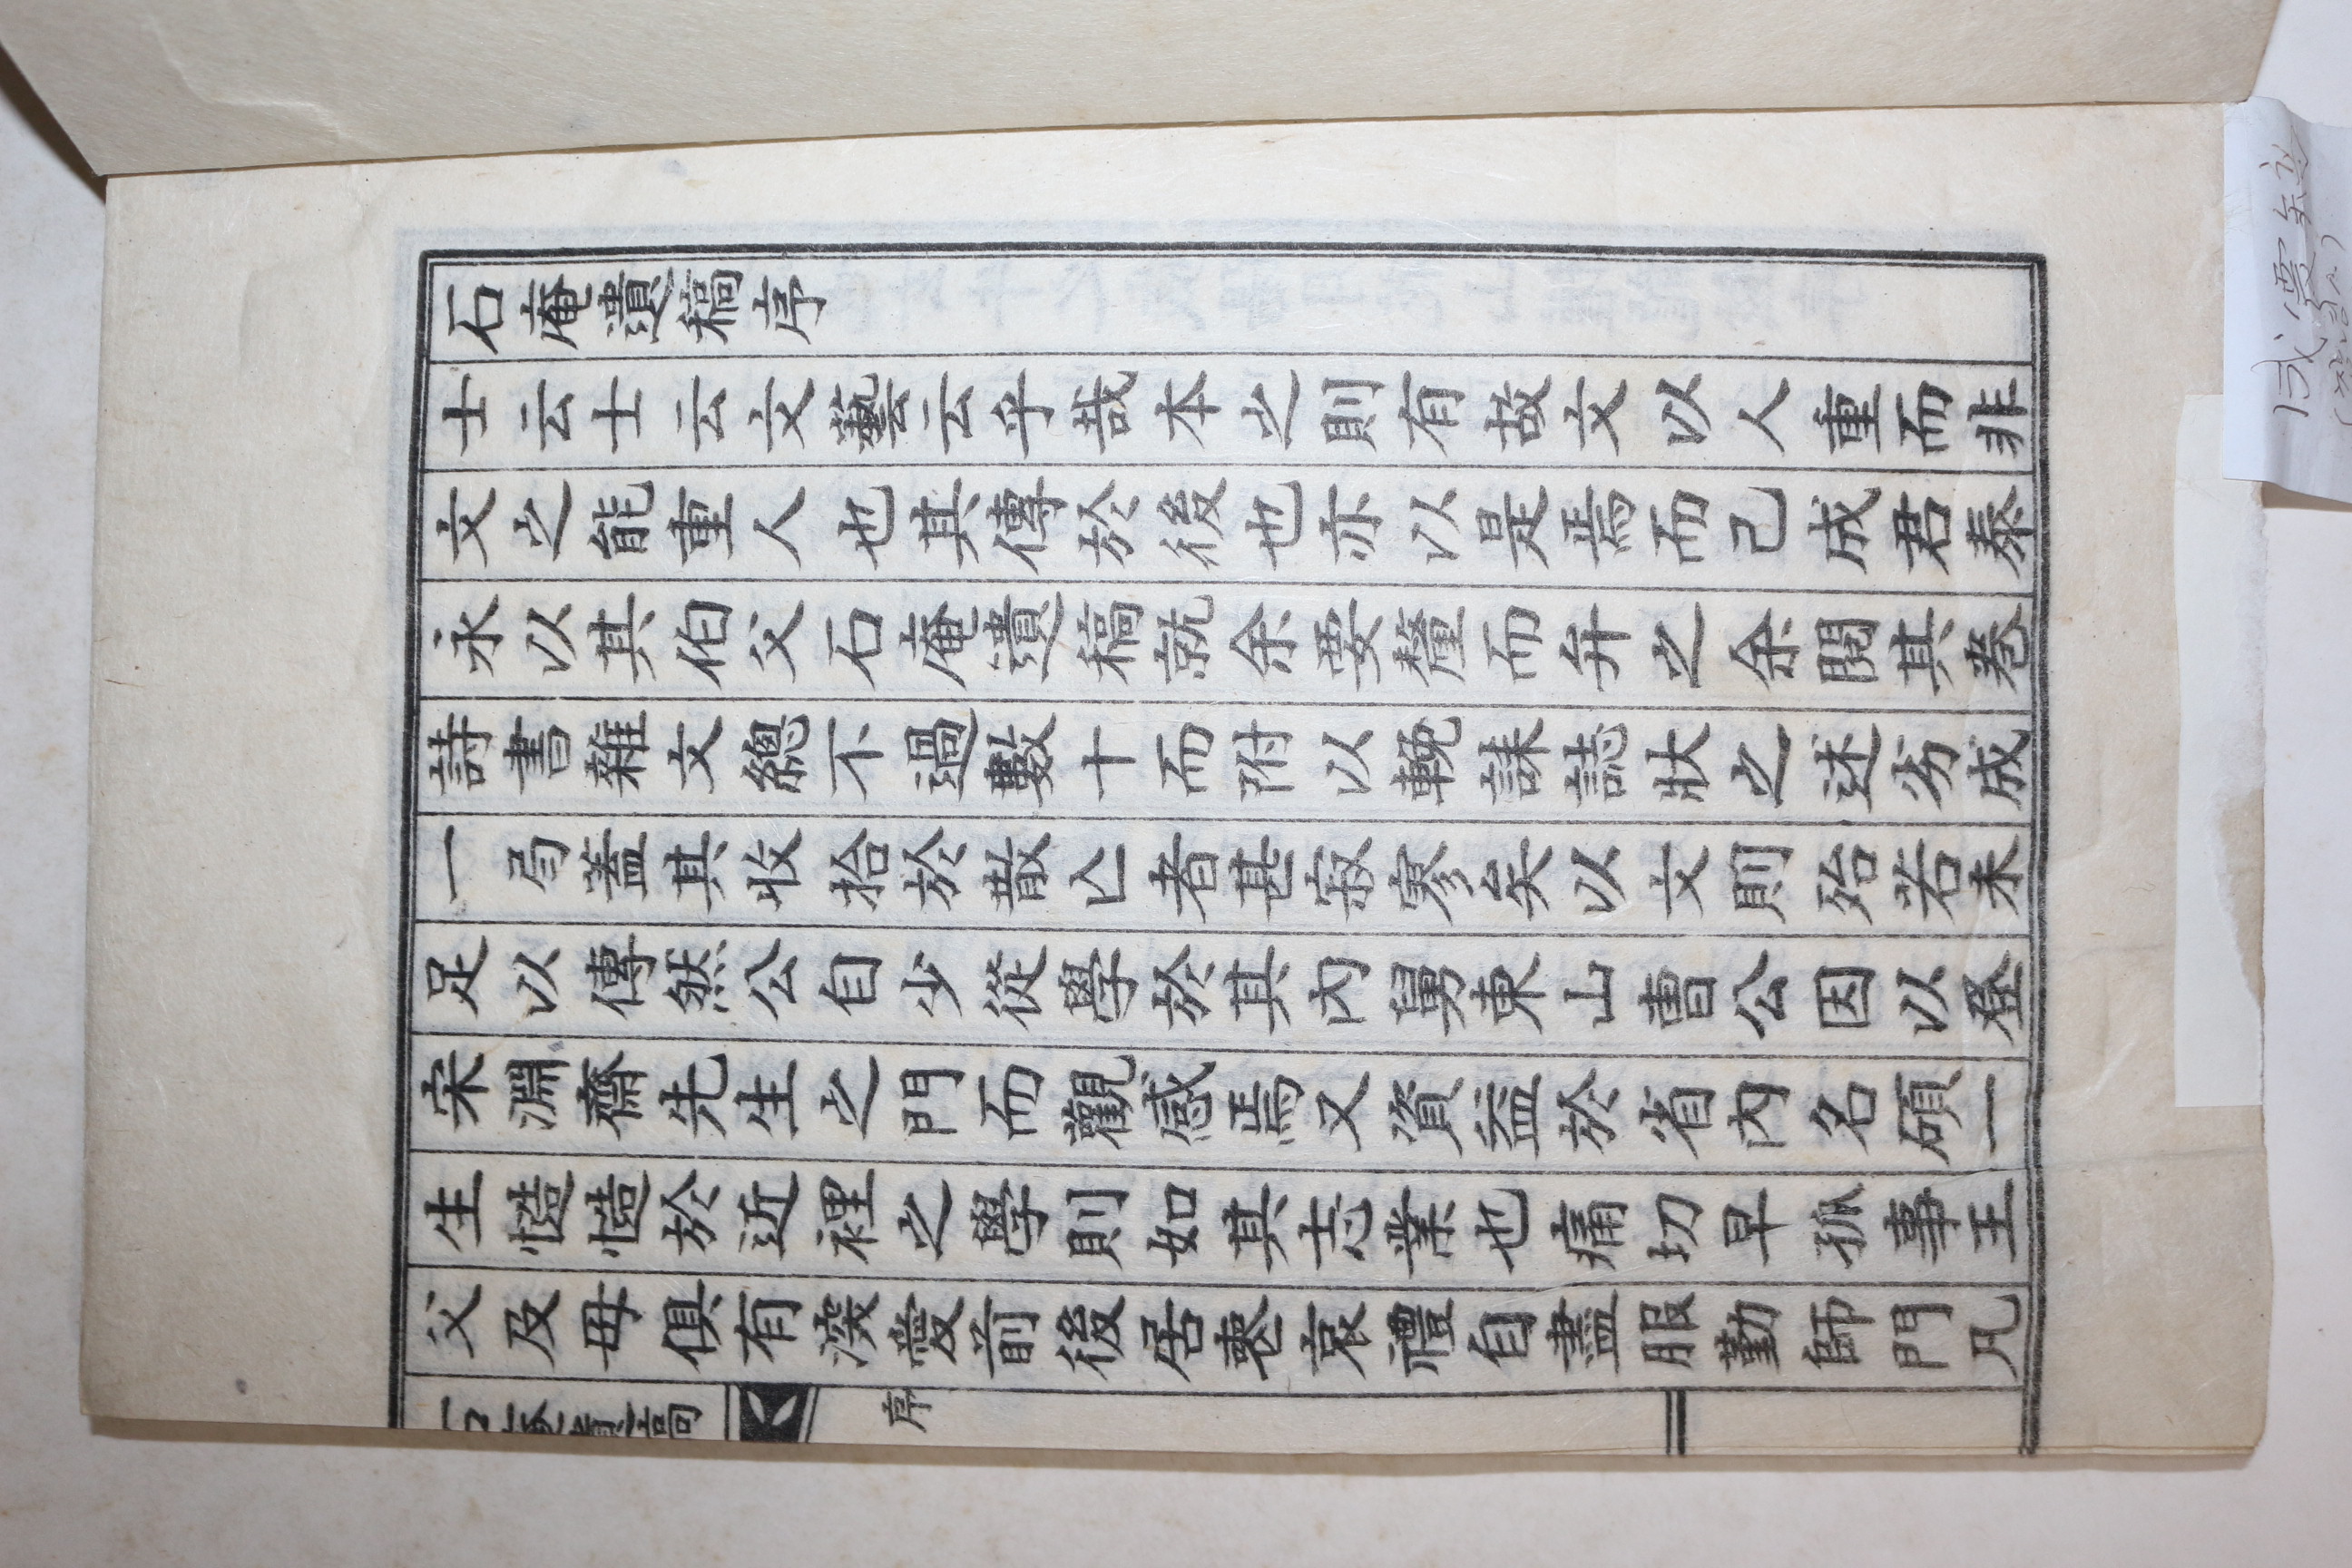 石庵遺稿序
士云士云文藝云乎哉本之則有故文以人重而非
文之能重人也其傳於後也亦以是焉而已成君泰
永以其伯父石庵遺稿就余要釐而弁之余閱其卷
詩書雜文總不過數十而附以輓誄誌狀之述劣成
一局蓋其收拾於散亾者甚寂寥矣以文則殆若未
足以傳然公自少從學於其內舅東山曺公因以登
宋淵齋先生之門而觀感焉又資益於省內名碩一
生慥慥於近裡之學則如其志業也痛切早孤事王
父及母俱有深愛前後居喪哀禮自盡服勤師門凡
石庵遺稿
序
成震